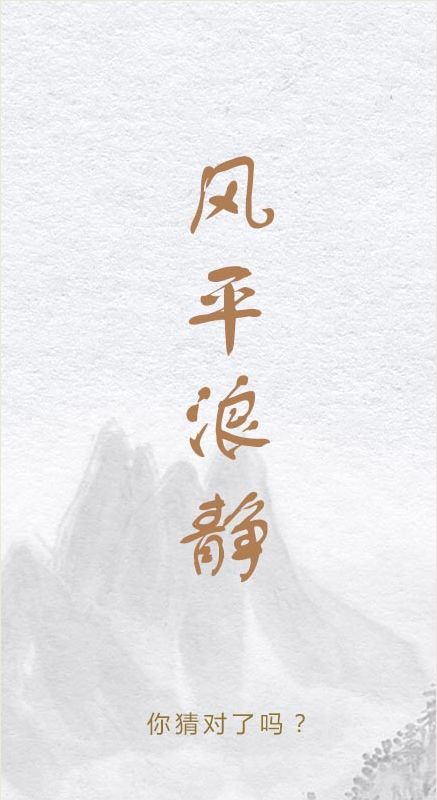 风平浪静
你猜对了吗？